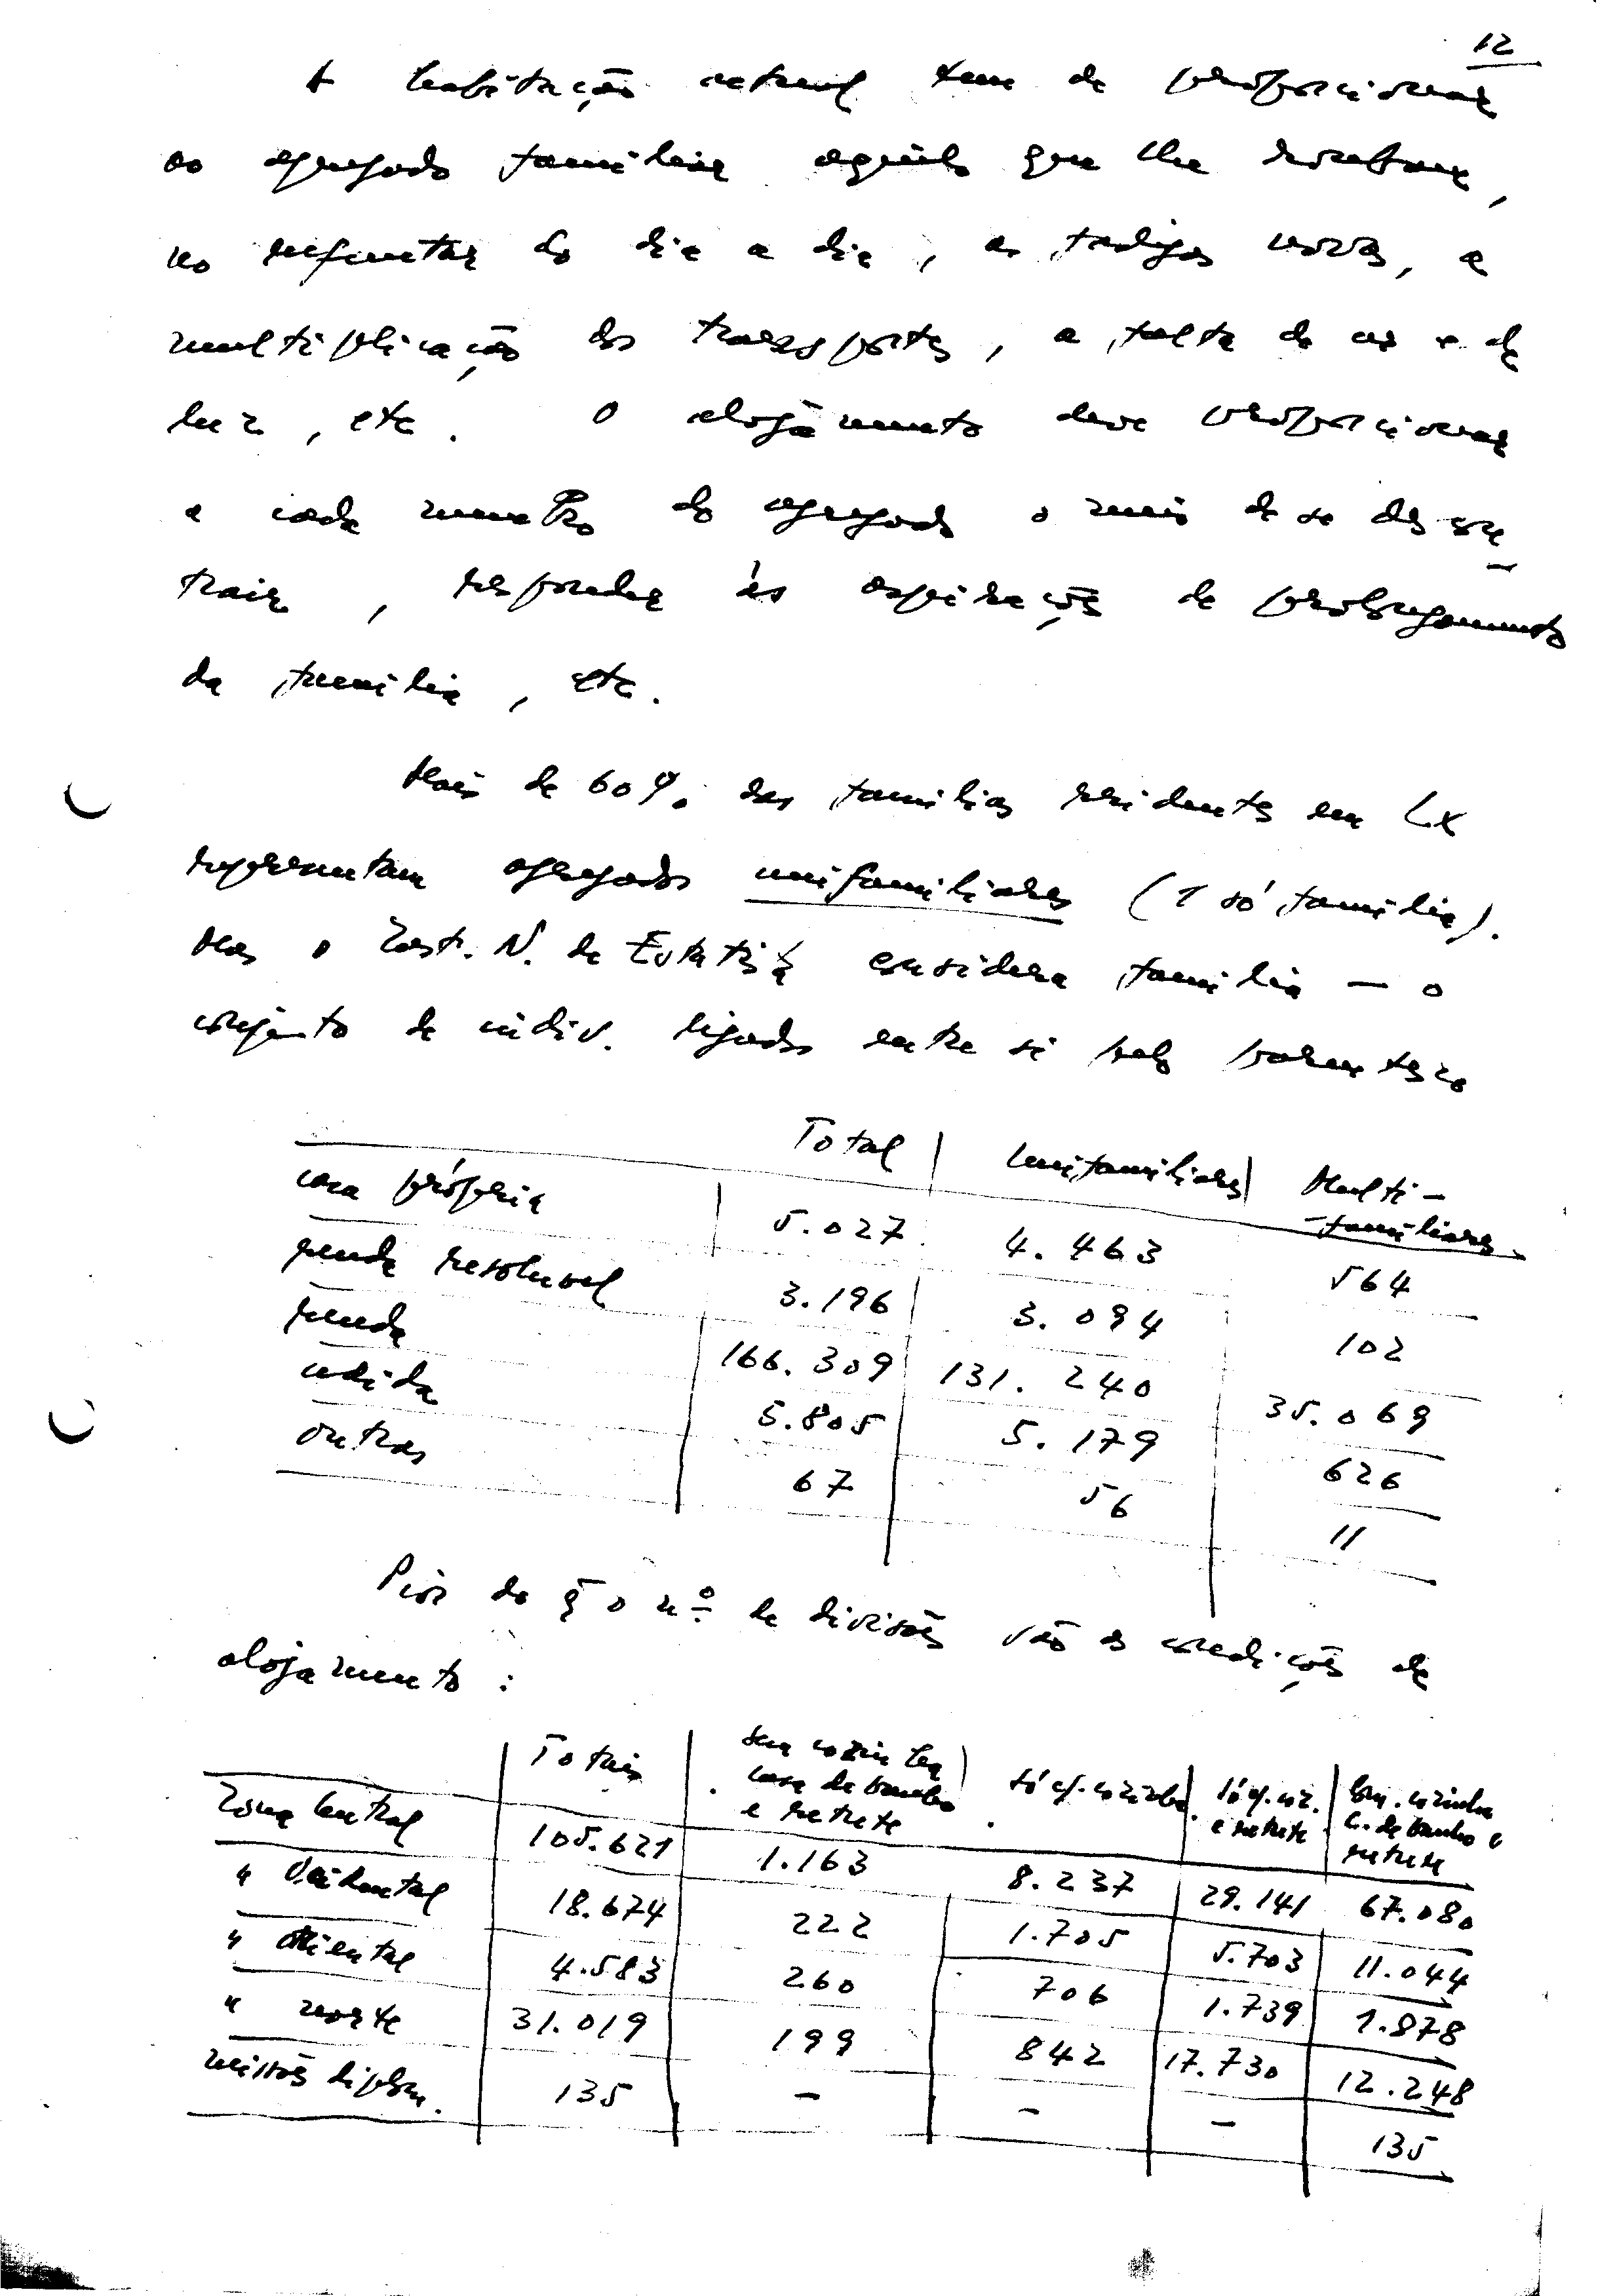 12
A habitação actual tem de proporcionar
ao agregado familiar aquilo que lhe roubam,
no enfrentar do dia a dia, as fadigas novas, a
multiplicação dos transportes, a falta de ar e de
luz, etc. O alojamento deve proporcionar
a cada membro do agregado o meio de se descon-
trair, responder às aspirações de prolongamento
da família, etc.
Mais de 60% das famílias residentes em Lx
representam agregados unifamiliares (1 só família).
Mas o Inst. N. de Estatística considera família — o
conjunto de indiv. ligados entre si pelo parentesco
Total | Unifamiliares | Multi-
-familiares
casa própria 5.027 4.463 564
renda resoluvel 3.196 3.094 102
renda 166.309 131.240 35.069
cedida 5.805 5.179 626
outras 67 56 11
Pior do q̃ o nº de divisões são as condições de
alojamento:
Totais | sem cozinha casa de banho e retrete | só c/. cozinha | só c/. coz. e retrete | Com. cozinha c. de banho e retrete
Zona Central 105.621 1.163 8.237 29.141 67.080
" Ocidental 18.674 222 1.705 5.703 11.044
" Oriental 4.583 260 706 1.739 1.878
" norte 31.019 199 842 17.730 12.248
missões diplom. 135 - - - 135